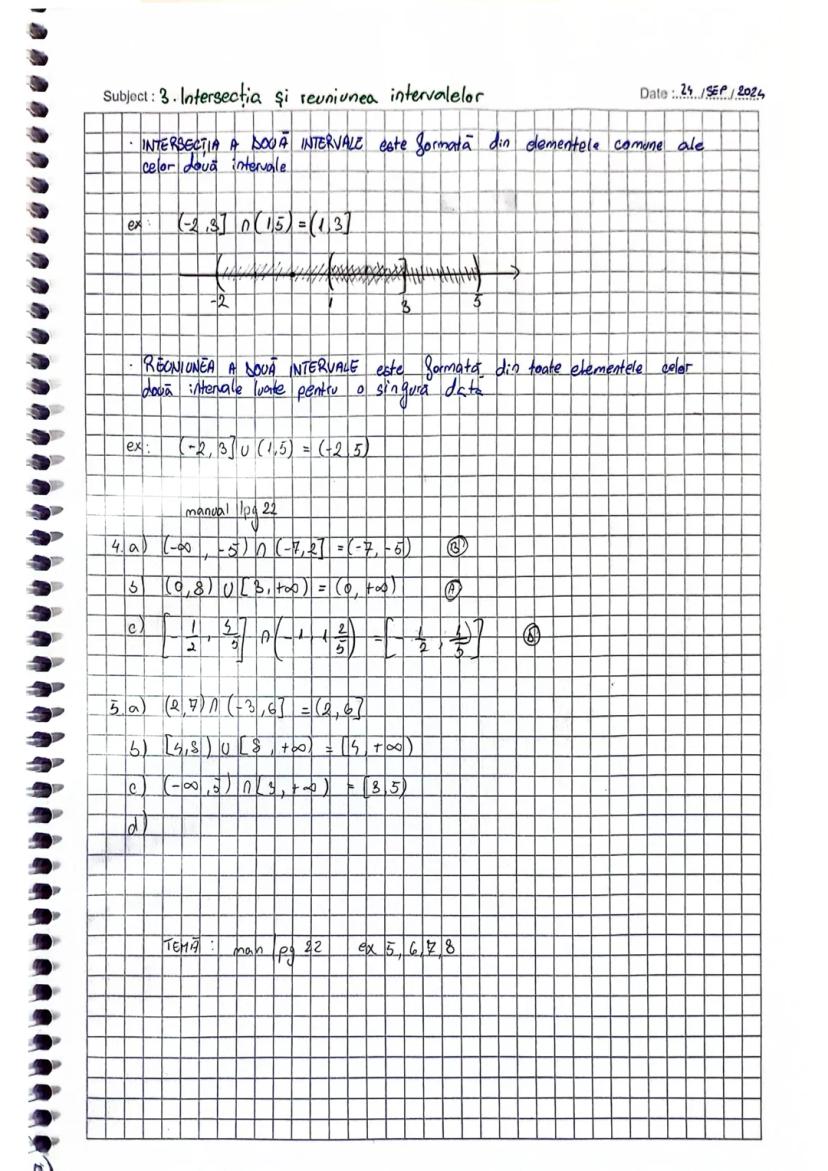 Subject : 3. Intersecția și reuniunea intervalelor
Date : 24 / SEP / 2024
· INTERSECȚIA A DOUĂ INTERVALE este formată din elementele comune ale
celor două intervale
ex: (-2,3] ∩ (1,5) = (1,3]
-2 1 3 5
· REUNIUNEA A DOUĂ INTERVALE este formată din toate elementele celor
două intervale luate pentru o singură dată
ex: (-2,3] ∪ (1,5) = (-2,5)
manual pg 22
4. a) (-∞, -5) ∩ (-7,2] = (-7,-5) B
b) (0,8) ∪ [3,+∞) = (0,+∞) A
c) [-1/2, 4/5] ∩ (-1, 1 2/5) = [-1/2, 4/5]
5. a) (2,7) ∩ (-3,6] = (2,6]
b) [4,8) ∪ [8,+∞) = [4,+∞)
c) (-∞,5) ∩ [3,+∞) = [3,5)
d)
TEMĂ : man pg 22 ex 5,6,7,8